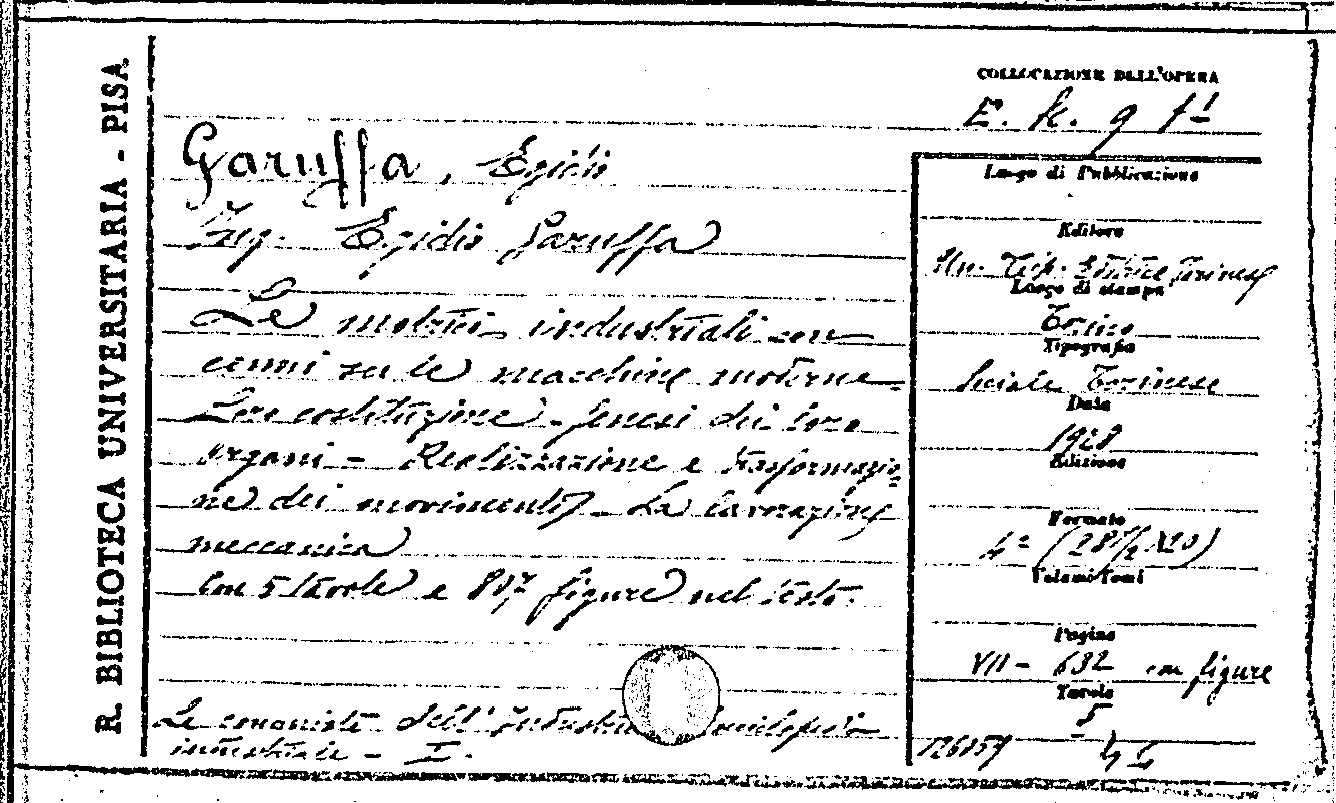 R. BIBLIOTECA UNIVERSITARIA - PISA
COLLOCAZIONE DELL'OPERA
E. k. 9 1¹
Garuffa, Egidio
Ing. Egidio Garuffa
Le motrici industriali con
cenni su le macchine moderne =
Loro costituzione - Genesi dei loro
organi - Realizzazione e trasformazio=
ne dei movimenti - La lavorazione
meccanica
Con 5 tavole e 807 figure nel testo.
Le conquiste dell'Industria
industriale - I.
Luogo di Pubblicazione
Editore
Un. Tip. Editrice Torinese
Luogo di stampa
Torino
Tipografia
Sociale Torinese
Data
1928
Edizione
Formato
4° (28 1/2 X 20)
Volumi/Tomi
Pagine
VII - 632 con figure
Tavole
5